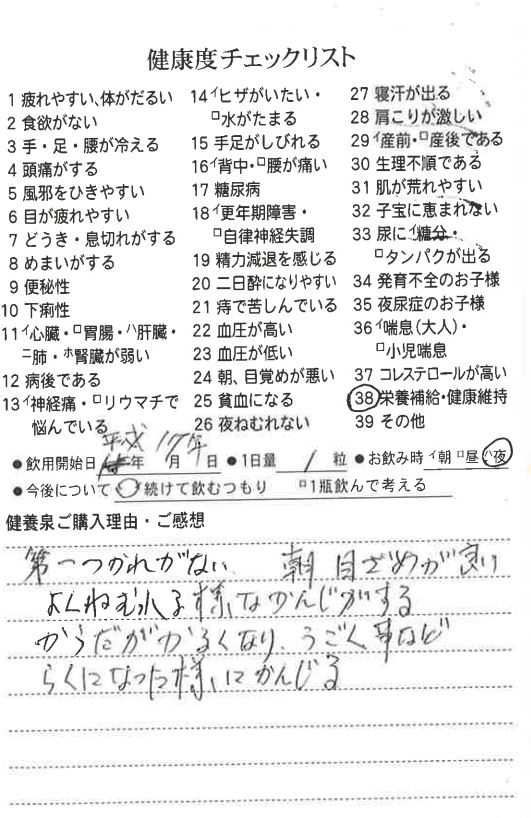 健康度チェックリスト
1 疲れやすい、体がだるい
2 食欲がない
3 手・足・腰が冷える
4 頭痛がする
5 風邪をひきやすい
6 目が疲れやすい
7 どうき・息切れがする
8 めまいがする
9 便秘性
10 下痢性
11 イ心臓・ロ胃腸・ハ肝臓・
ニ肺・ホ腎臓が弱い
12 病後である
13 イ神経痛・ロリウマチで
悩んでいる
14 イヒザがいたい・
ロ水がたまる
15 手足がしびれる
16 イ背中・ロ腰が痛い
17 糖尿病
18 イ更年期障害・
ロ自律神経失調
19 精力減退を感じる
20 二日酔になりやすい
21 痔で苦しんでいる
22 血圧が高い
23 血圧が低い
24 朝、目覚めが悪い
25 貧血になる
26 夜ねむれない
27 寝汗が出る
28 肩こりが激しい
29 イ産前・ロ産後である
30 生理不順である
31 肌が荒れやすい
32 子宝に恵まれない
33 尿にイ糖分・
ロタンパクが出る
34 発育不全のお子様
35 夜尿症のお子様
36 イ喘息(大人)・
ロ小児喘息
37 コレステロールが高い
38 栄養補給・健康維持
39 その他
平成 17年
●飲用開始日 年 月 日 ●1日量 1 粒 ●お飲み時 イ朝 ロ昼 ハ夜
●今後について 続けて飲むつもり ロ1瓶飲んで考える
健養泉ご購入理由・ご感想
第一つかれがない 朝目ざめが良い
よくねむれる様なかんじがする
からだがかるくなり、うごく事など
らくになった様にかんじる